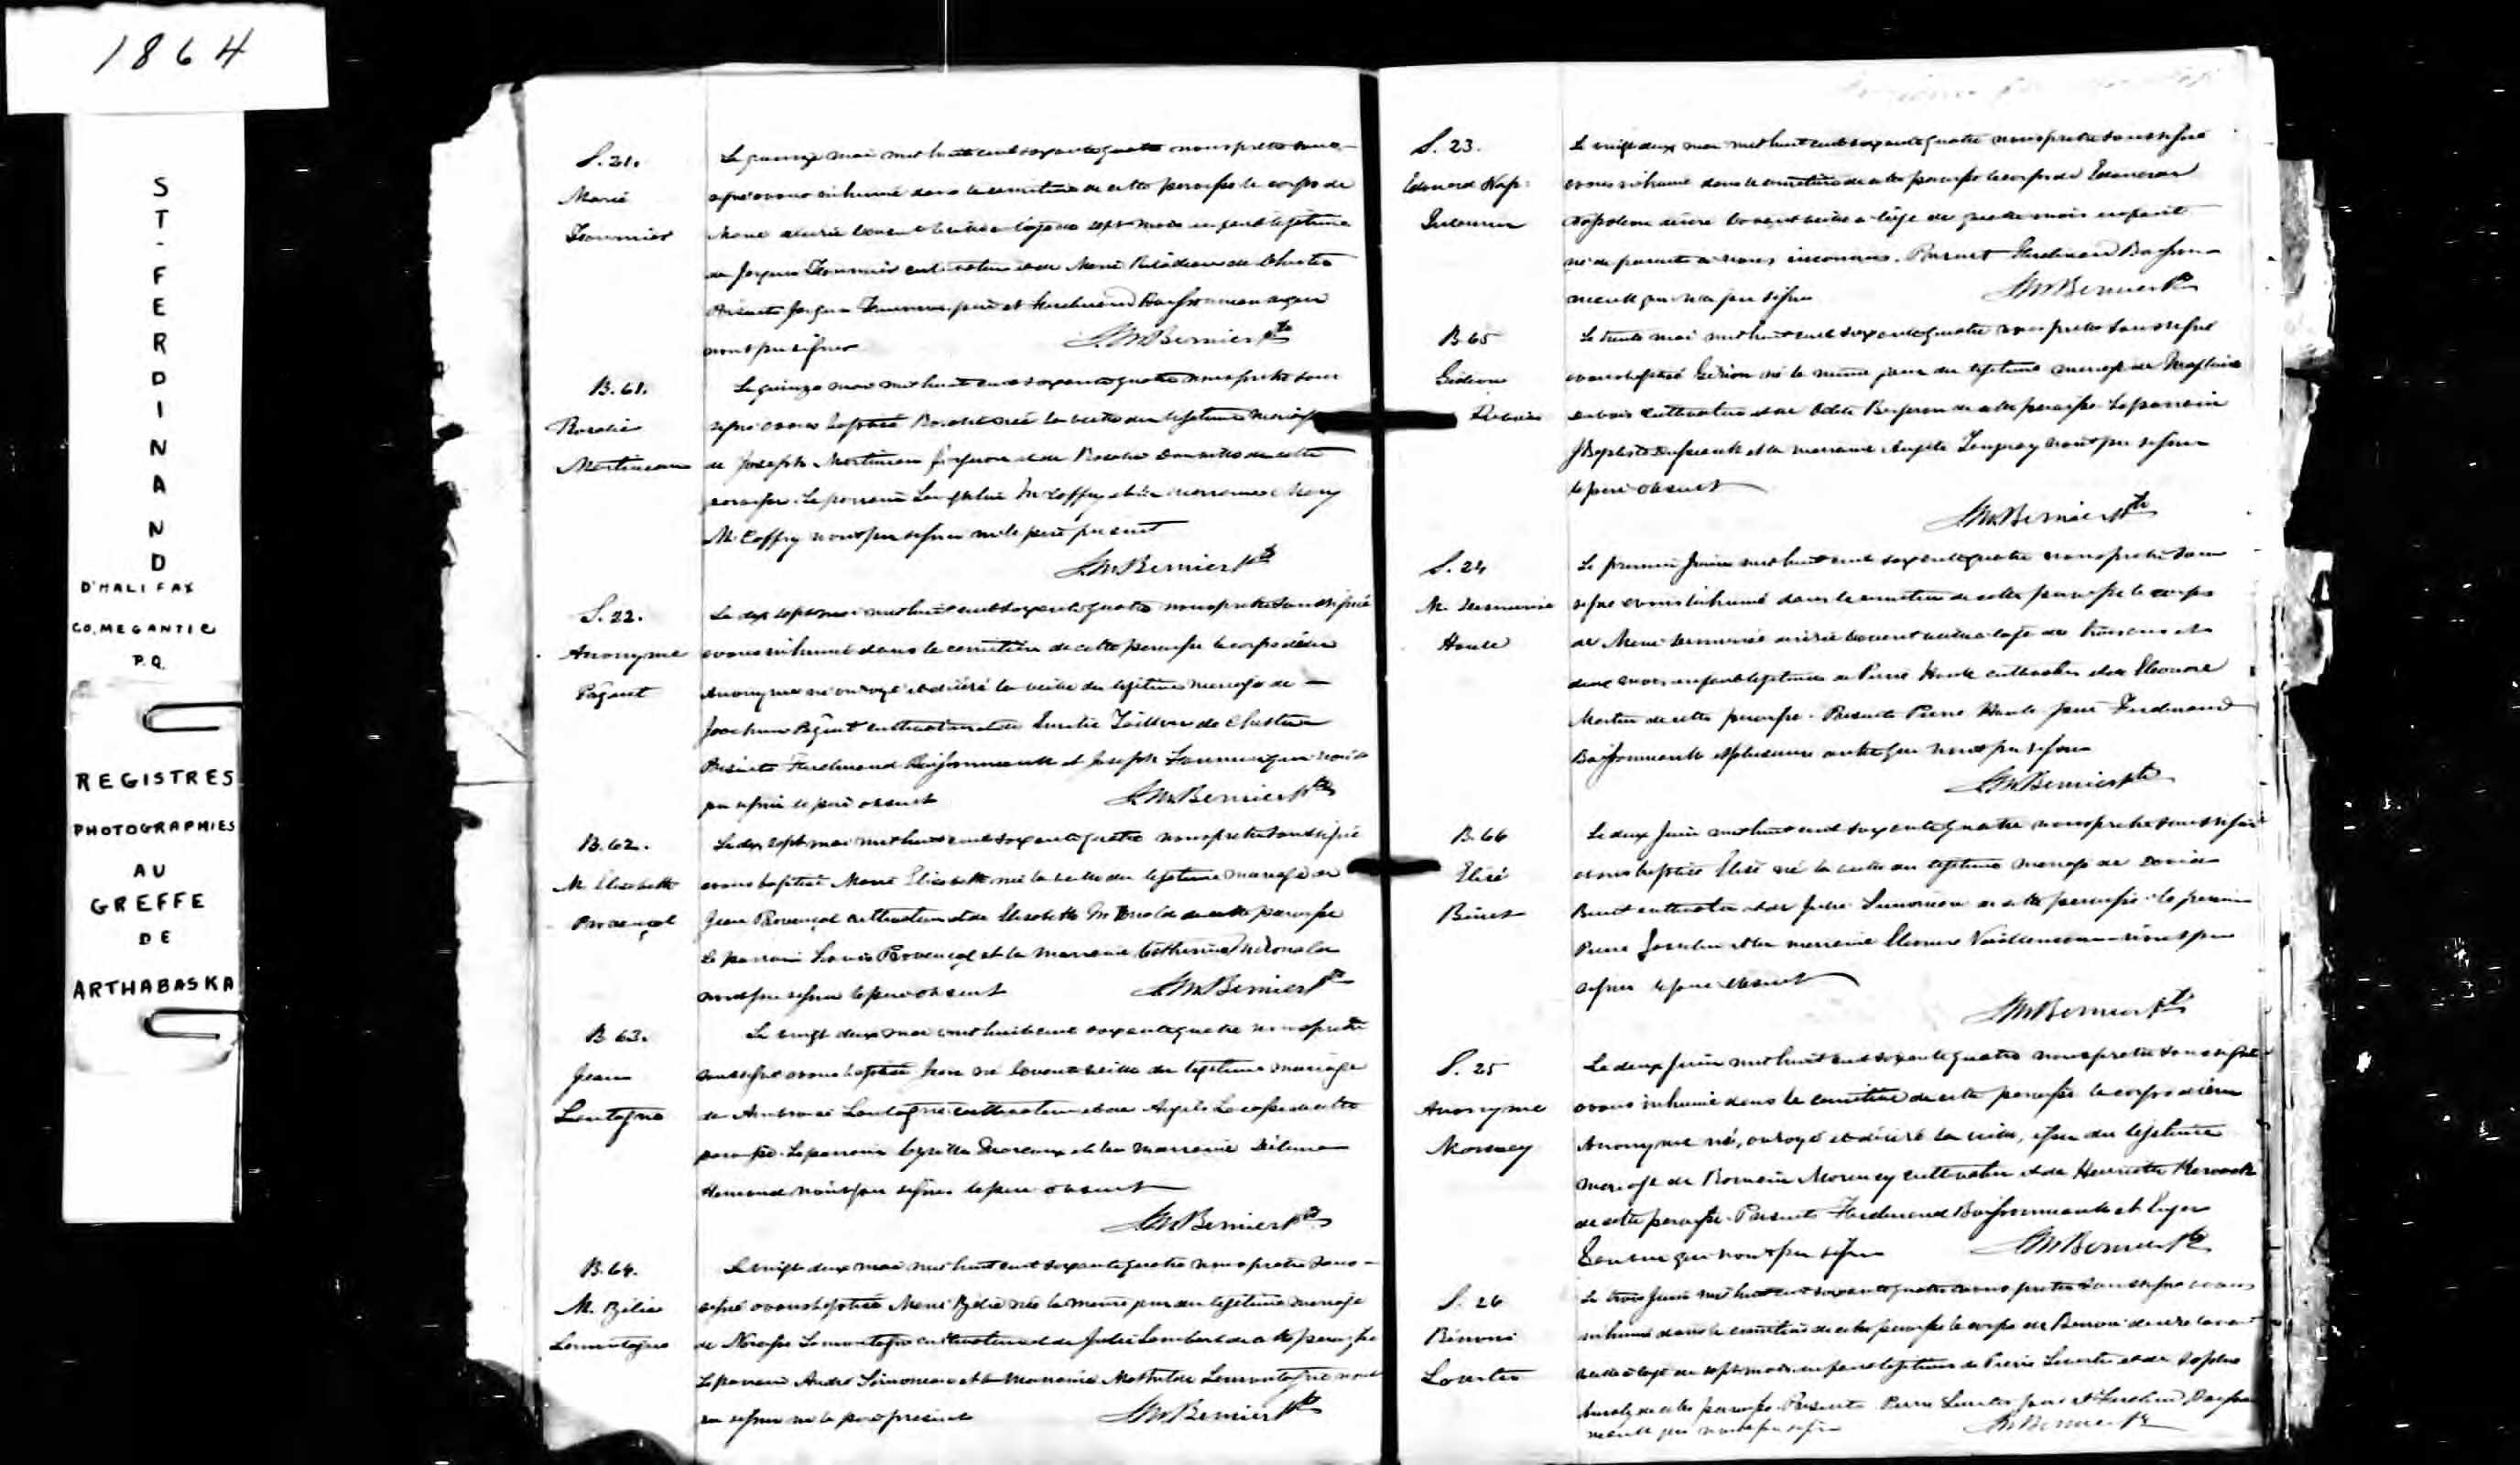 1864
ST-FERDINAND
D'HALIFAX
CO. MEGANTIC
P.Q.
REGISTRES
PHOTOGRAPHIES
AU
GREFFE
DE
ARTHABASKA
S. 21.
Marie
Fournier
Le quinze mai mil huit cent soixante quatre nous pretre sous-
signé avons inhumé dans le cemetiere de cette paroisse le corps de
Marie décédée l'avant veille a l'age de sept mois enfant légitime
de Jacques Fournier cultivateur et de Marie de Chester
Présents Jacques Fournier père et Ferdinand Boissonneau qui
n'ont pu signer
L.M. Bernier Ptre
B. 61.
Rosalie
Martineau
Le quinze mai mil huit cent soixante quatre nous pretre sous
signé avons baptisé Rosalie née la veille du legitime mariage
de Joseph Martineau forgeron et de Rosalie de cette
paroisse. Le parrain McCaffry et la marraine Mary
McCaffry n'ont pu signer ni le père présent
L.M. Bernier Ptre
S. 22.
Anonyme
Paquet
Le dix sept mai mil huit cent soixante quatre nous pretre soussigné
avons inhumé dans le cemetière de cette paroisse le corps d'un
Anonyme né ondoyé et décédé la veille du légitime mariage de
Joachim Paquet cultivateur et de de Chester
Présents Ferdinand Boissonneault et Joseph qui n'ont
pu signer le père absent
L.M. Bernier Ptre
B. 62.
M. Elisabeth
Provençal
Le dix sept mai mil huit cent soixante quatre nous pretre soussigné
avons baptisé Marie Elisabeth née la veille du legitime mariage de
Jean Provençal cultivateur et de Elisabeth McDonald de cette paroisse
Le parrain Louis Provençal et la marraine Catherine McDonald
n'ont pu signer le père absent
L.M. Bernier Ptre
B. 63.
Jean
Lantagne
Le vingt deux mai mil huit cent soixante quatre nous pretre
soussigné avons baptisé Jean né l'avant veille du legitime mariage
de Ambroise Lantagne cultivateur et de Angèle de cette
paroisse. Le parrain Cyrille et la marraine
Hemond n'ont pu signer le père absent
L.M. Bernier Ptre
B. 64.
M. Zélia
Lamontagne
Le vingt deux mai mil huit cent soixante quatre nous pretre sous-
signé avons baptisé Marie Zélia née le même jour du legitime mariage
de Lamontagne cultivateur et de Julie Lambert de cette paroisse
Le parrain André Simoneau et la marraine Mathilde Lamontagne n'ont
pu signer ni le père présent
L.M. Bernier Ptre
S. 23.
Edouard Nap.
Le vingt deux mai mil huit cent soixante quatre nous pretre soussigné
avons inhumé dans le cemetière de cette paroisse le corps de Edouard
Napoleon décédé l'avant veille a l'âge de quatre mois enfant
né de parents a nous inconnus. Présent Ferdinand Boisson-
neault qui n'a pu signer
L.M. Bernier Ptre
B. 65
Gédéon
Dubois
Le trente mai mil huit cent soixante quatre nous pretre soussigné
avons baptisé Gédéon né le même jour du legitime mariage de
Dubois cultivateur et de Odile Bergeron de cette paroisse. Le parrain
J Baptiste et la marraine Angèle Tanguay n'ont pu signer
le père absent
L.M. Bernier Ptre
S. 24
M.
Houle
Le premier Juin mil huit cent soixante quatre nous pretre sous
signé avons inhumé dans le cemetière de cette paroisse le corps
de Marie décédée l'avant veille a l'age de trois ans et
deux mois enfant legitime de Pierre Houle cultivateur et de Eleonore
Martin de cette paroisse. Présents Pierre Houle père Ferdinand
Boissonneault et plusieurs autres qui n'ont pu signer
L.M. Bernier Ptre
B. 66
Elisé
Binet
Le deux Juin mil huit cent soixante quatre nous pretre soussigné
avons baptisé Elisé né la veille du legitime mariage de David
Binet cultivateur et de Julie Simoneau de cette paroisse. le parrain
Pierre et la marraine Eleonore Vaillancour n'ont pu
signer le père absent
L.M. Bernier Ptre
S. 25
Anonyme
Morency
Le deux Juin mil huit cent soixante quatre nous pretre soussigné
avons inhumé dans le cemetière de cette paroisse le corps d'un
Anonyme né, ondoyé et décédé la veille, issu du légitime
mariage de Romain Morency cultivateur et de Henriette
de cette paroisse. Présents Ferdinand Boissonneault et
qui n'ont pu signer
L.M. Bernier Ptre
S. 26
Bénoni
Le trois Juin mil huit cent soixante quatre nous pretre soussigné avons
inhumé dans le cemetière de cette paroisse le corps de Benoni décédé l'avant
veille a l'age de sept mois enfant legitime de Pierre et de Sophie
de cette paroisse. Présents Pierre père et Ferdinand Boisson
neault qui n'ont pu signer
L.M. Bernier Ptre